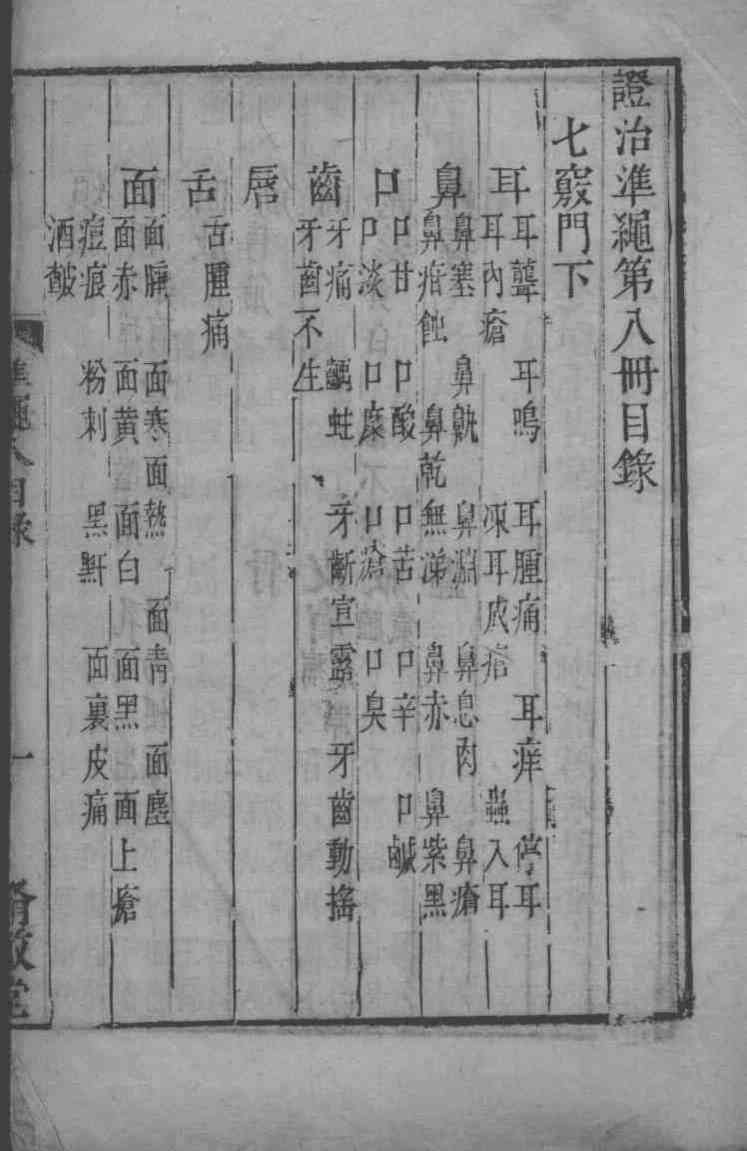 證治準繩第八冊目錄
七竅門下
耳 耳聾 耳鳴 耳腫痛 耳痒 停耳
耳內瘡 凍耳成瘡 蟲入耳
鼻 鼻塞 鼻鼽 鼻淵 鼻息肉 鼻瘡
鼻疳蝕 鼻乾無涕 鼻赤 鼻紫黑
口 口甘 口酸 口苦 口辛 口鹹
口淡 口糜 口瘡 口臭
齒 牙痛 齲蛀 牙齗宣露 牙齒動搖
牙齒不生
唇
舌 舌腫痛
面 面腫 面寒面熱 面青 面塵
面赤 面黃 面白 面黑 面上瘡
痘痕 粉刺 黑䵟 面裏皮痛
酒皶
準繩八目錄
一